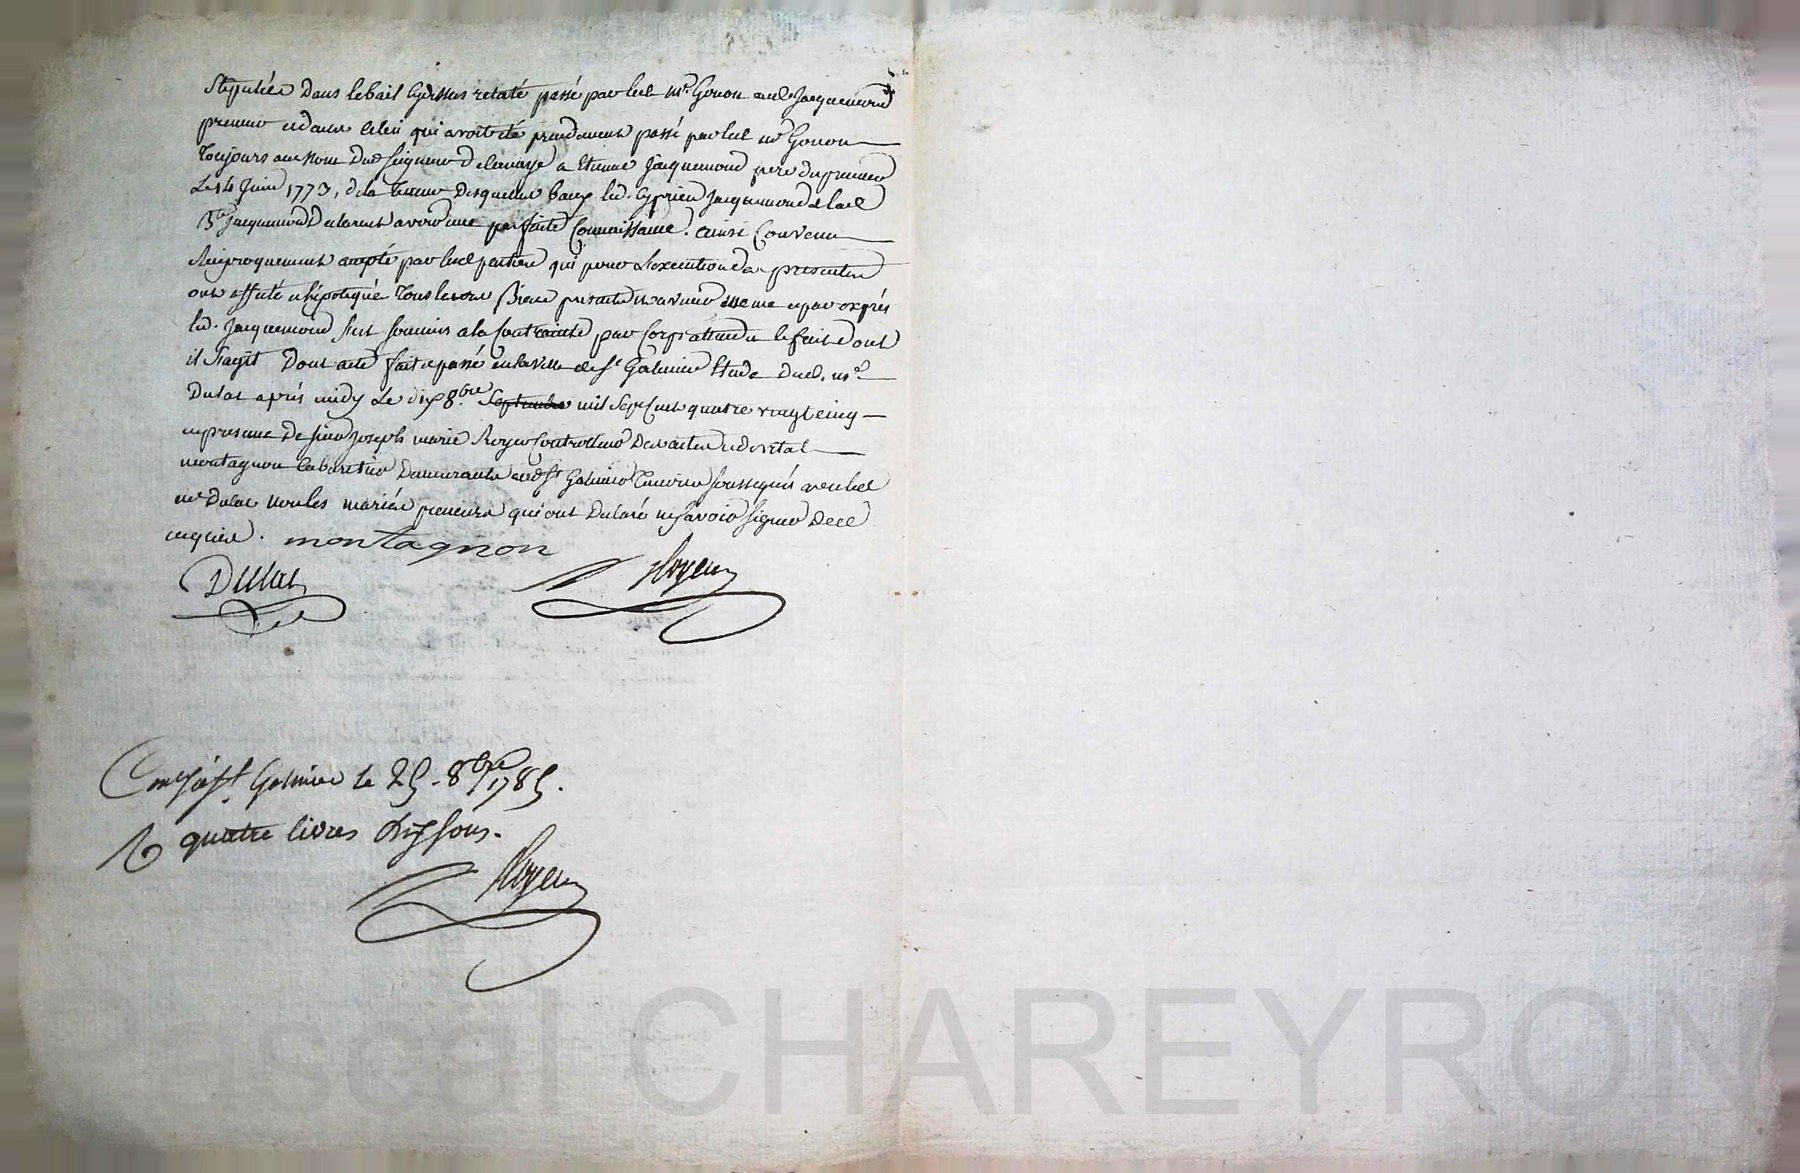 Stipulées dans le bail cydessus relaté passé par led. mr. Gonon aud. Jacquemond
preneur et dans celui qui avoit été precedament passé par led. mr. Gonon
toujours au nom dud. seigneur de a Etienne Jacquemond pere du preneur
Le 14 Juin 1773, de la teneur desquels baux led. Cyprien Jacquemond et lad.
Jacquemond declarent avoir une parfaite Connoissance. ainsi Convenu
Reciproquement accepté par lesd. parties qui pour l'execution des presentes
ont affecté et hipotequé tous leurs Biens presents et avenir meme et par exprés
led. Jacquemond s'est soumis a la Contrainte par Corps attendu le fait dont
il s'agit Dont acte fait et passé en la ville de St. Galmier Etude dud. mr.
Dulac aprés midy Le dix 8bre Septembre mil Sept Cent quatre vingt cinq
en presence de sieur Joseph marie Royer Controlleur des actes et de vital
montagnon Cabaretier demeurants aud. St. Galmier temoins soussignés avec led.
mr. Dulac non les mariés preneurs qui ont declaré ne savoir signer de ce
enquis. montagnon
Dulac Royer
Con.lé à St. Galmier le 25. 8bre 1785.
R quatre livres dix sous.
Royer
Pascal CHAREYRON